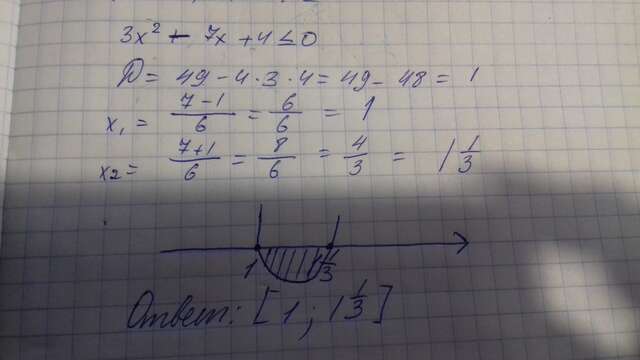 3x² - 7x + 4 ≤ 0
D = 49 - 4 · 3 · 4 = 49 - 48 = 1
x₁ = (7-1)/6 = 6/6 = 1
x₂ = (7+1)/6 = 8/6 = 4/3 = 1 1/3
1 1 1/3
Ответ: [1; 1 1/3]